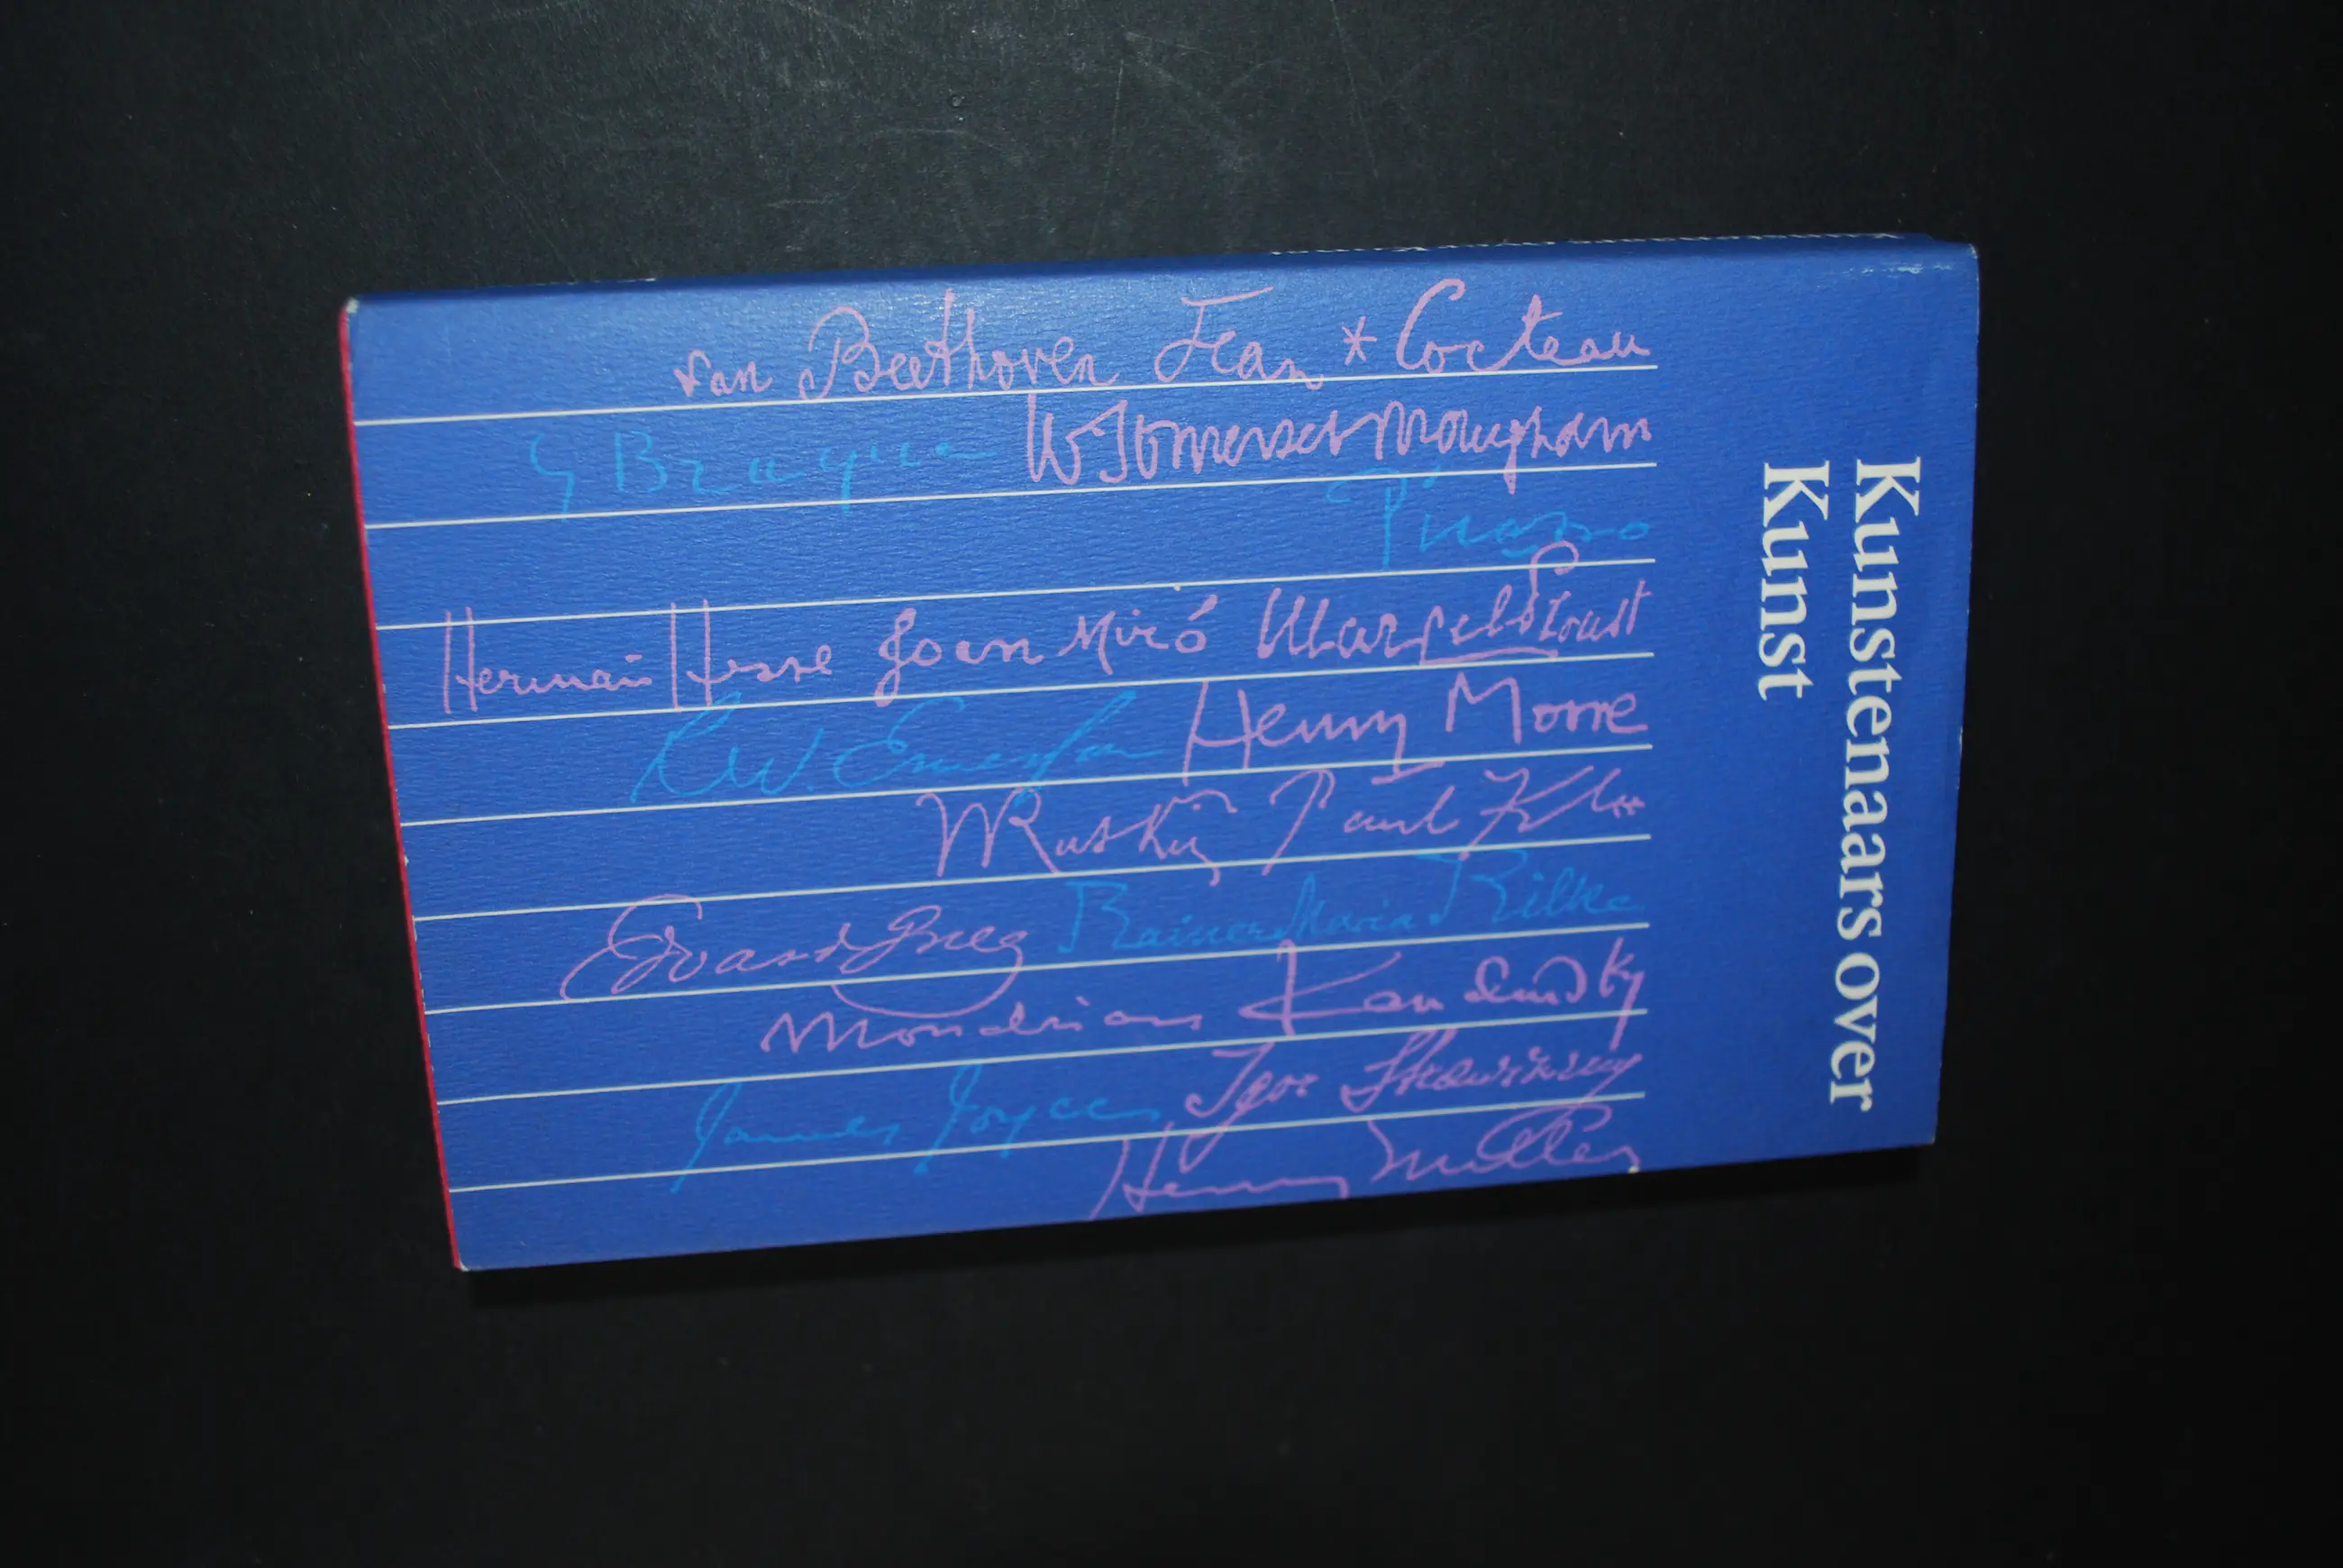 Kunstenaars over
Kunst
van Beethoven Jean * Cocteau
G Braque W Somerset Maugham
Picasso
Hermann Hesse Joan Miró Marcel Proust
R.W. Emerson Henry Moore
Ruskin Paul Klee
Edvard Grieg Rainer Maria Rilke
Mondrian Kandinsky
James Joyce Igor Strawinsky
Henry Miller